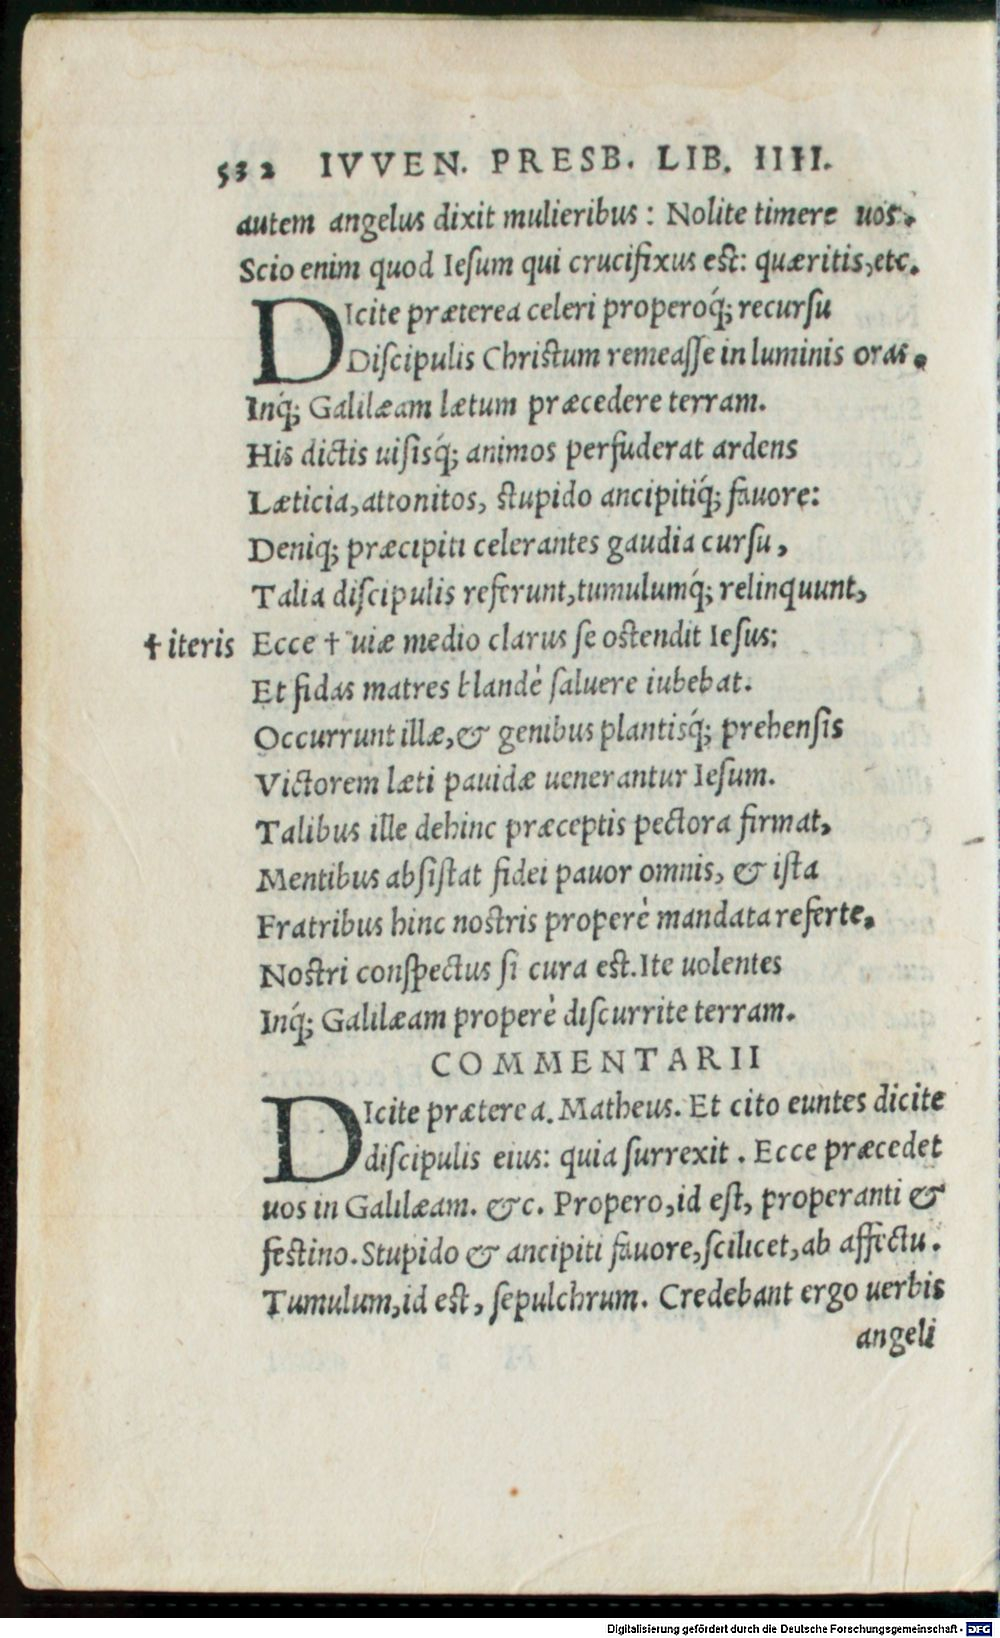 532 IVVEN. PRESB. LIB. IIII.
autem angelus dixit mulieribus: Nolite timere uos.
Scio enim quod Iesum qui crucifixus est: quæritis, etc.
DIcite præterea celeri properoq́; recursu
Discipulis Christum remeasse in luminis oras.
Inq́; Galilæam lætum præcedere terram.
His dictis uisisq́; animos perfuderat ardens
Læticia, attonitos, stupido ancipitiq́; fauore:
Deniq; præcipiti celerantes gaudia cursu,
Talia discipulis referunt, tumulumq́; relinquunt,
† iteris Ecce † uiæ medio clarus se ostendit Iesus:
Et fidas matres blandè saluere iubebat.
Occurrunt illæ, & genibus plantisq́; prehensis
Victorem læti pauidæ uenerantur Iesum.
Talibus ille dehinc præceptis pectora firmat,
Mentibus absistat fidei pauor omnis, & ista
Fratribus hinc nostris properè mandata referte.
Nostri conspectus si cura est. Ite uolentes
Inq́; Galilæam properè discurrite terram.
COMMENTARII
DIcite præterea. Matheus. Et cito euntes dicite
discipulis eius: quia surrexit. Ecce præcedet
uos in Galilæam. &c. Propero, id est, properanti &
festino. Stupido & ancipiti fauore, scilicet, ab affectu.
Tumulum, id est, sepulchrum. Credebant ergo uerbis
angeli
Digitalisierung gefördert durch die Deutsche Forschungsgemeinschaft - DFG